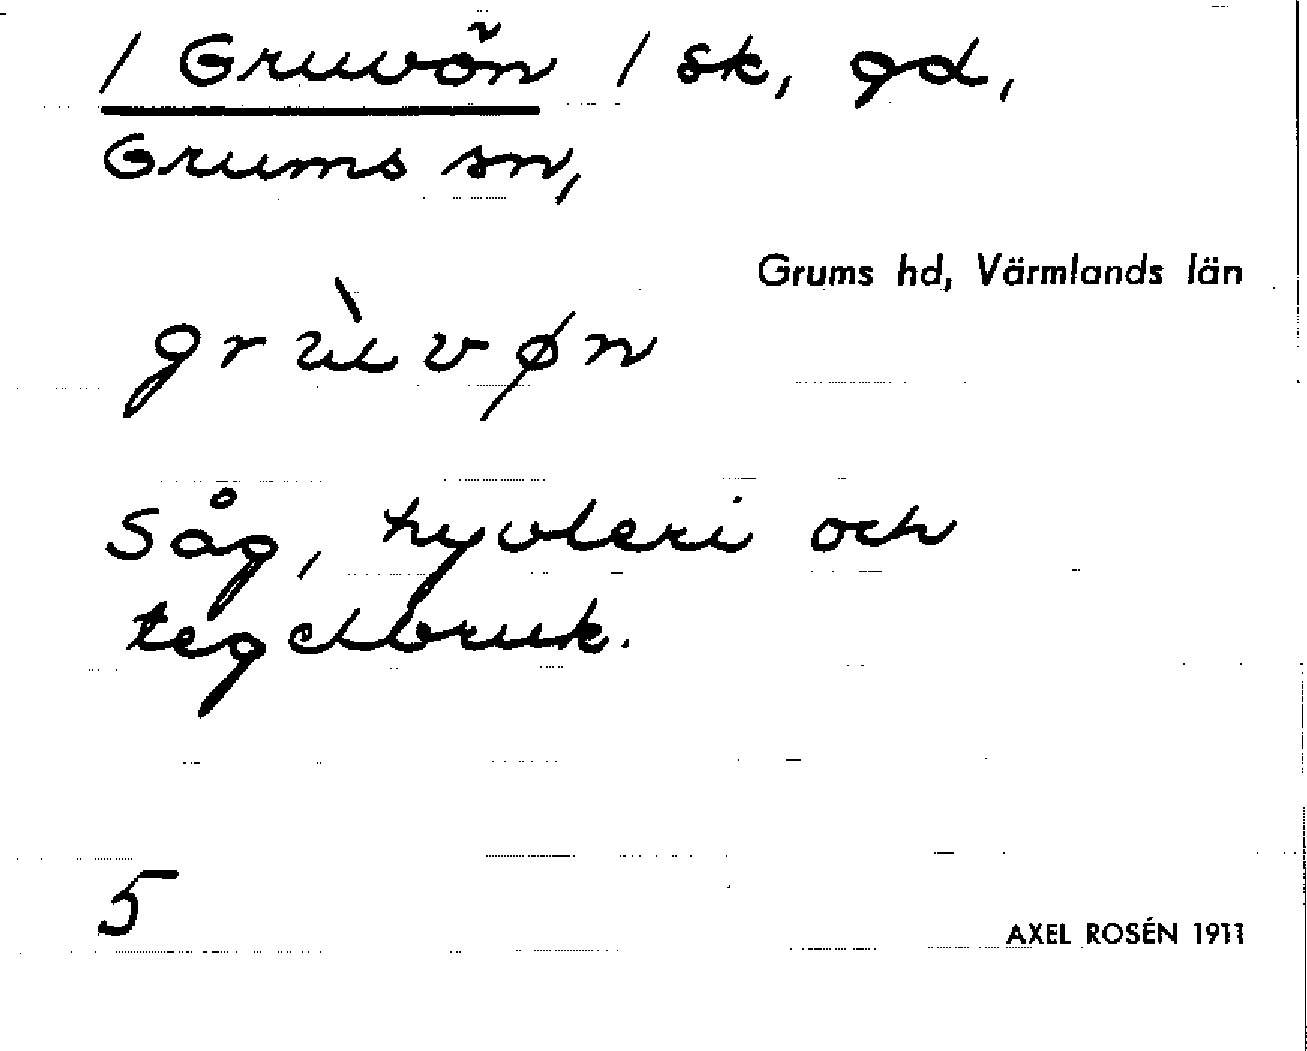 / Gruvön / sk, gd,
Grums sn,
Grums hd, Värmlands län
grùvøn
Såg, hyvleri och
tegelbruk.
5
AXEL ROSÉN 1911